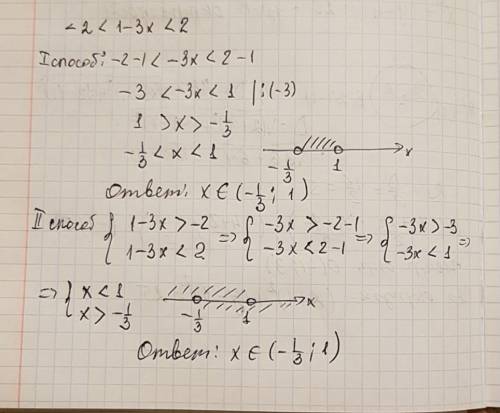 -2 < 1-3x < 2
I способ: -2-1 < -3x < 2-1
-3 < -3x < 1 | :(-3)
1 > x > -1/3
-1/3 < x < 1
-1/3 1 x
Ответ: x ∈ (-1/3 ; 1)
II способ { 1-3x > -2 => { -3x > -2-1 => { -3x > -3 =>
1-3x < 2 -3x < 2-1 -3x < 1
=> { x < 1
x > -1/3
-1/3 1 x
Ответ: x ∈ (-1/3 ; 1)